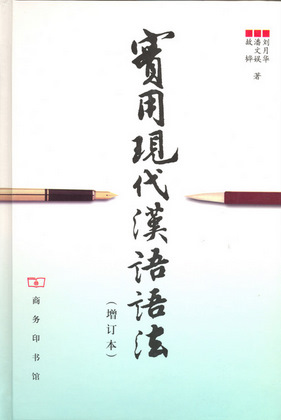 刘月华
潘文娱 著
故韡
實用現代漢語語法
(增订本)
商务印书馆